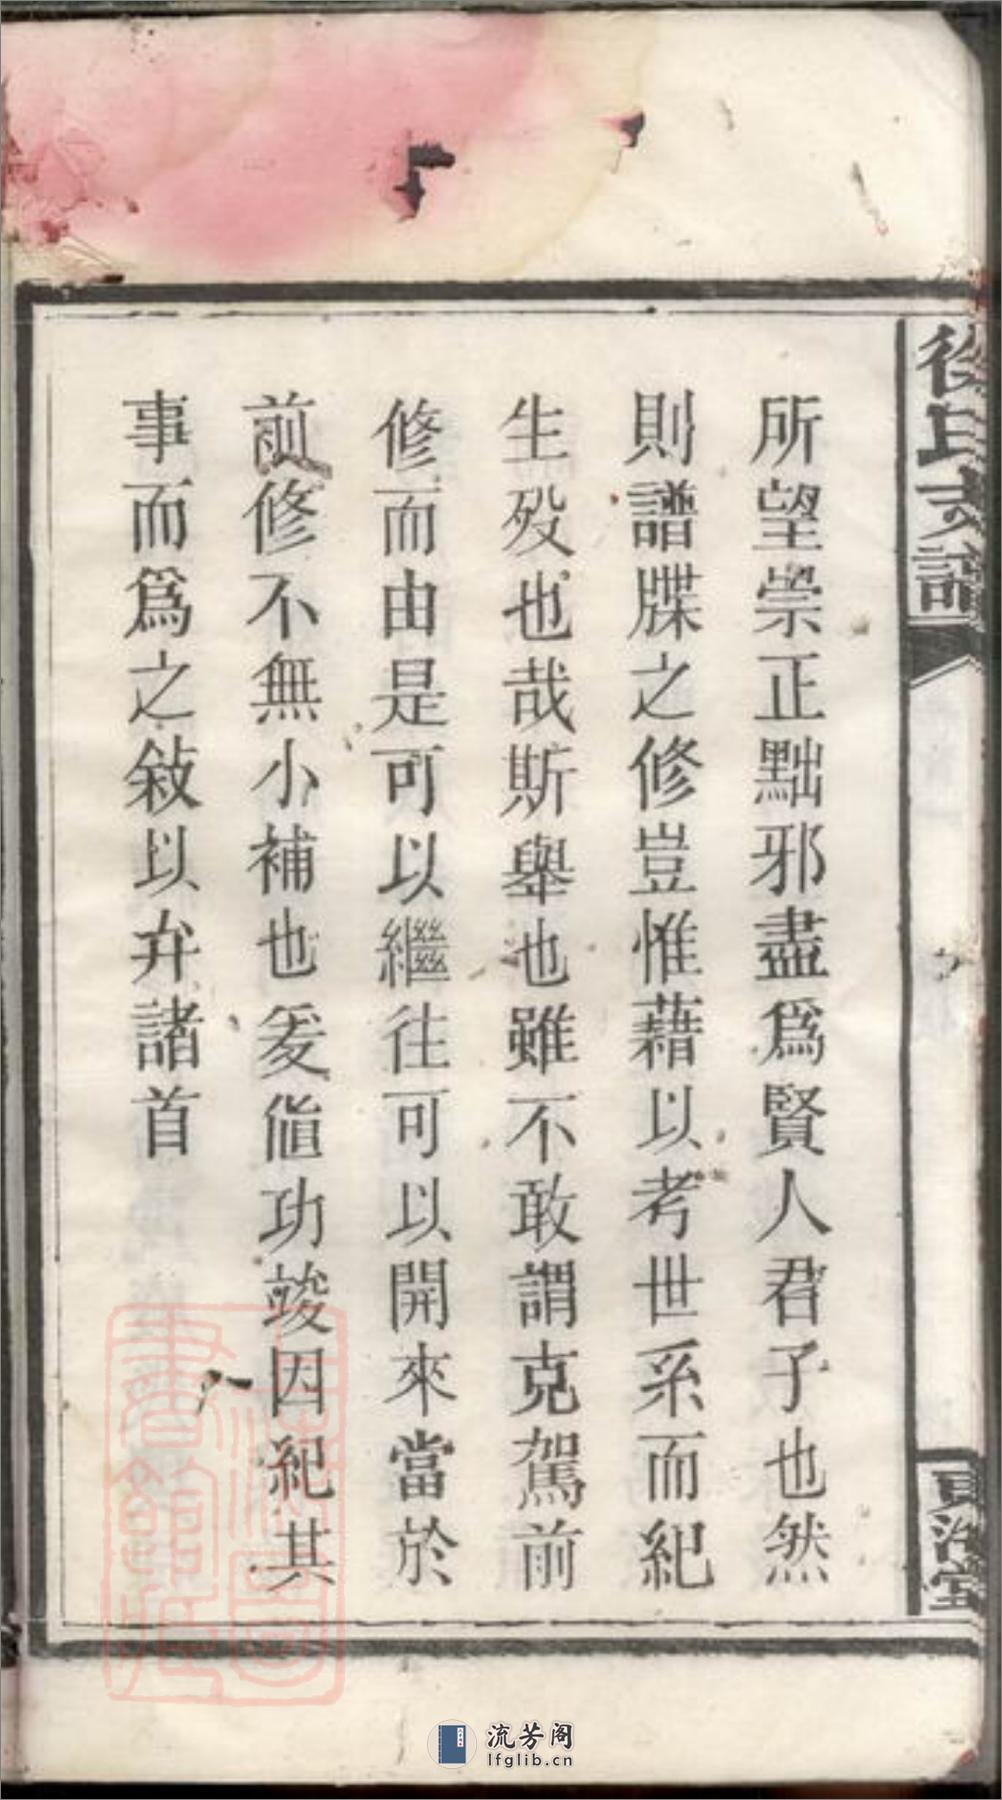 徐氏支譜
所望崇正黜邪盡爲賢人君子也然
則譜牒之修豈惟藉以考世系而紀
生歿也哉斯舉也雖不敢謂克駕前
修而由是可以繼往可以開來當於
前修不無小補也爰值功竣因紀其
事而爲之敍以弁諸首
八
治堂
流芳阁
lfglib.cn